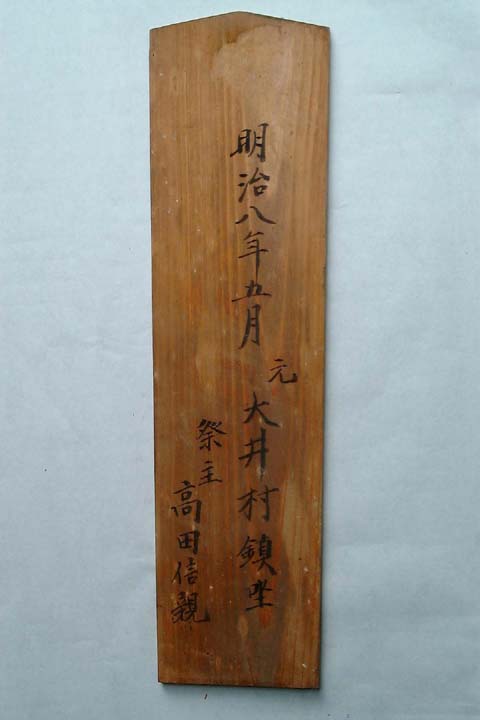 明治八年五月
元 大井村鎮坐
祭主 高田信親